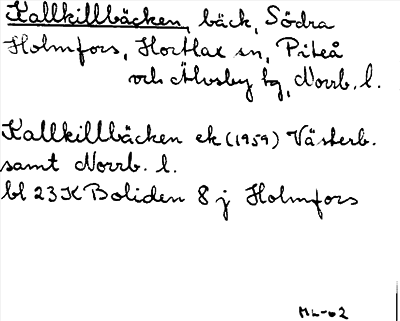 Kallkillbäcken, bäck, Södra
Holmfors, Hortlax sn, Piteå
och Älvsby tg, Norrb. l.
Kallkillbäcken ek (1959) Västerb.
samt Norrb. l.
bl 23 K Boliden 8 j Holmfors
ML-62